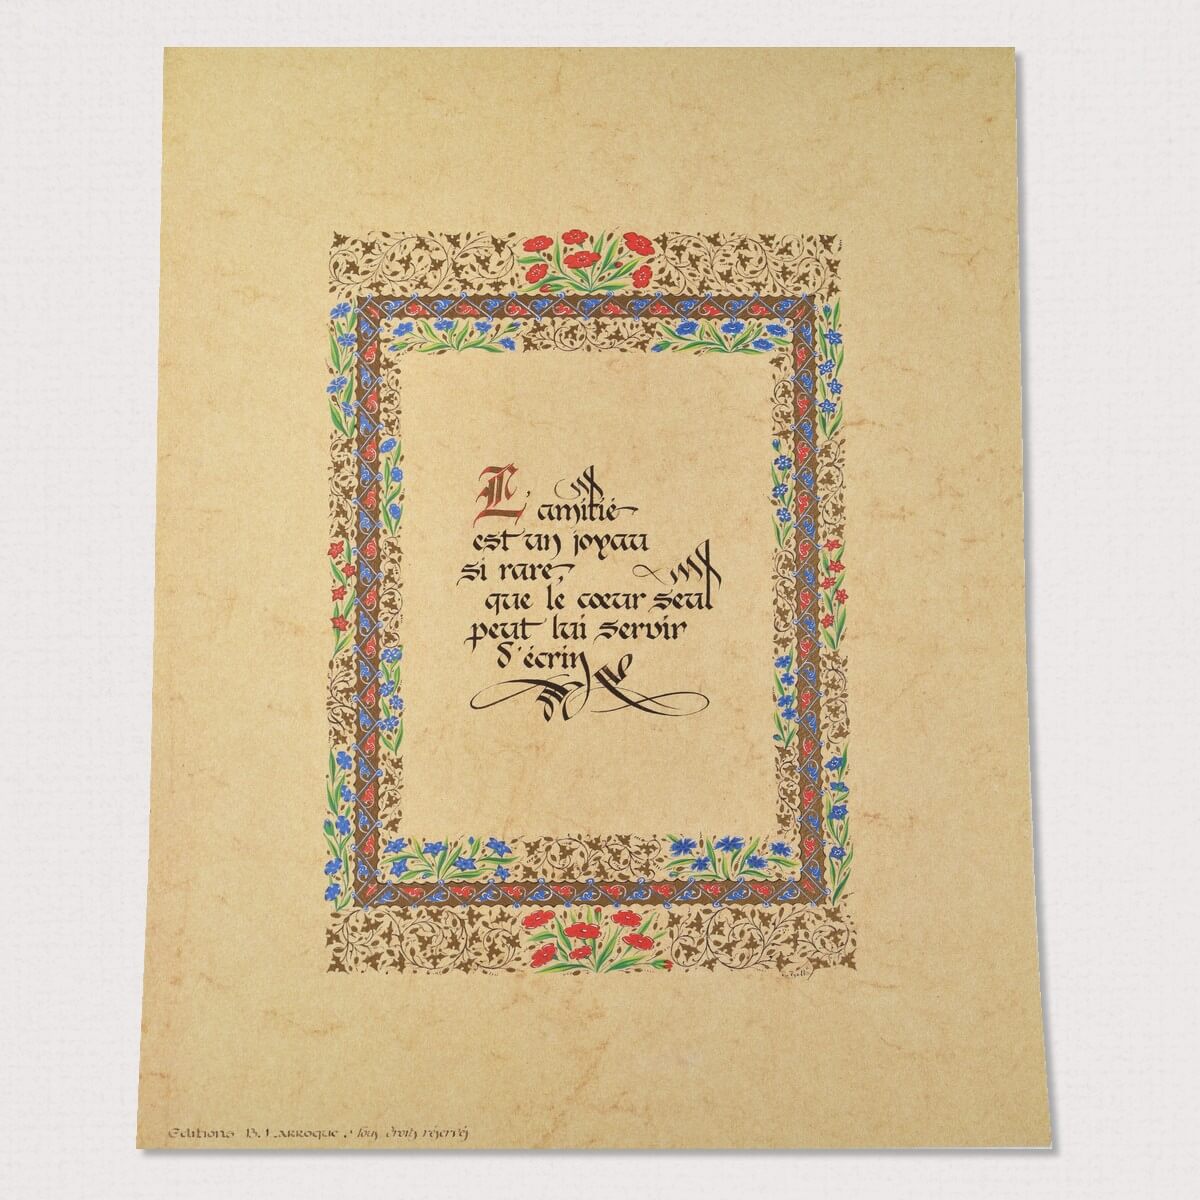 L'amitié
est un joyau
si rare,
que le cœur seul
peut lui servir
d'écrin
Editions B. Larroque . Tous droits réservés